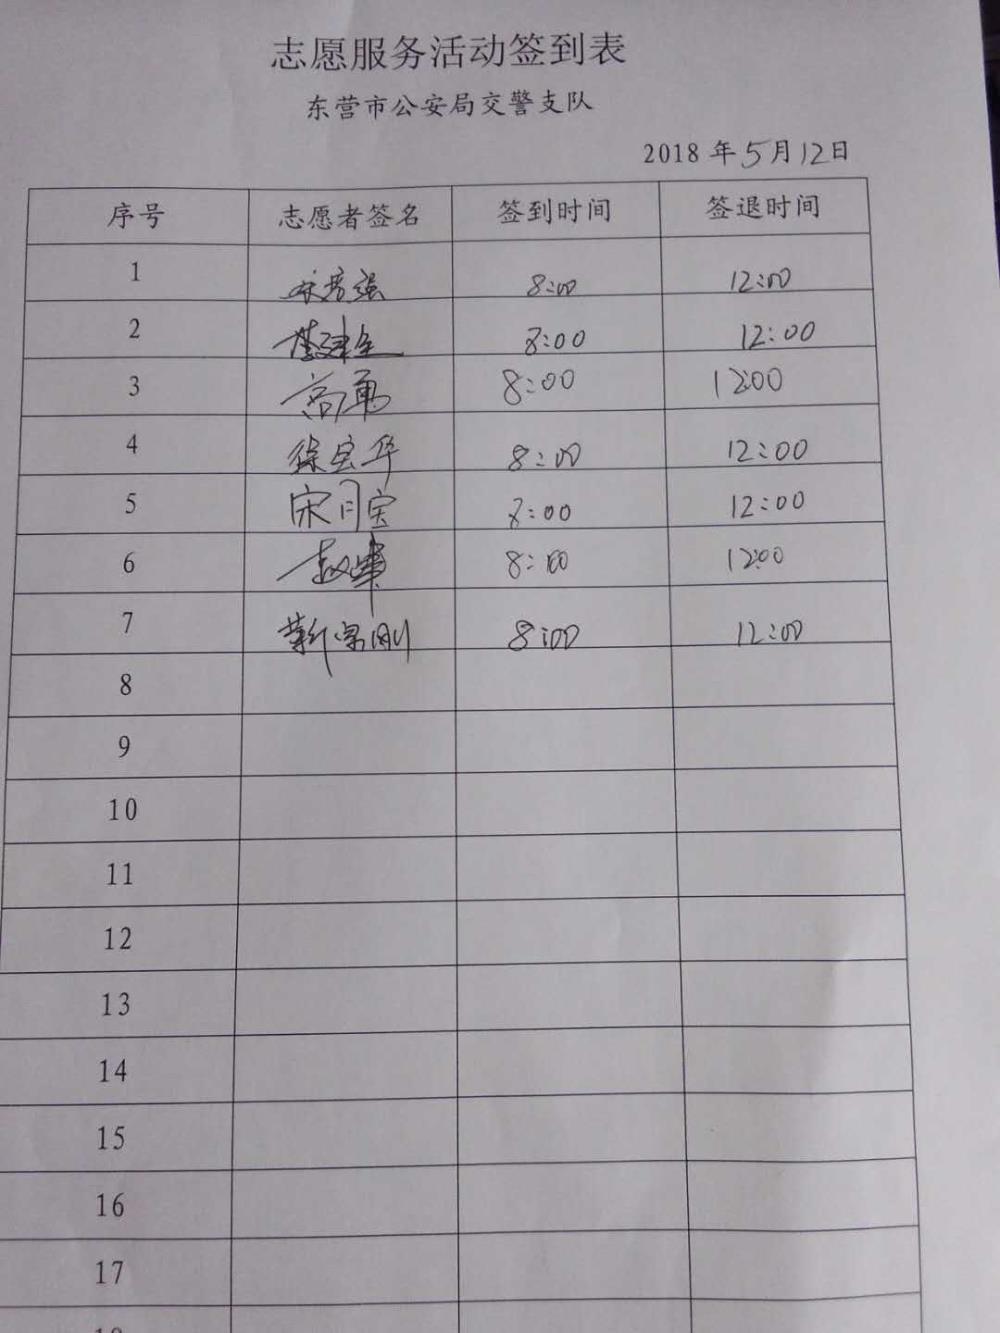 志愿服务活动签到表
东营市公安局交警支队
2018 年 5 月 12 日
序号 志愿者签名 签到时间 签退时间
1 8:00 12:00
2 8:00 12:00
3 高勇 8:00 12:00
4 徐宝华 8:00 12:00
5 宋月宝 8:00 12:00
6 8:00 12:00
7 8:00 12:00
8
9
10
11
12
13
14
15
16
17
18